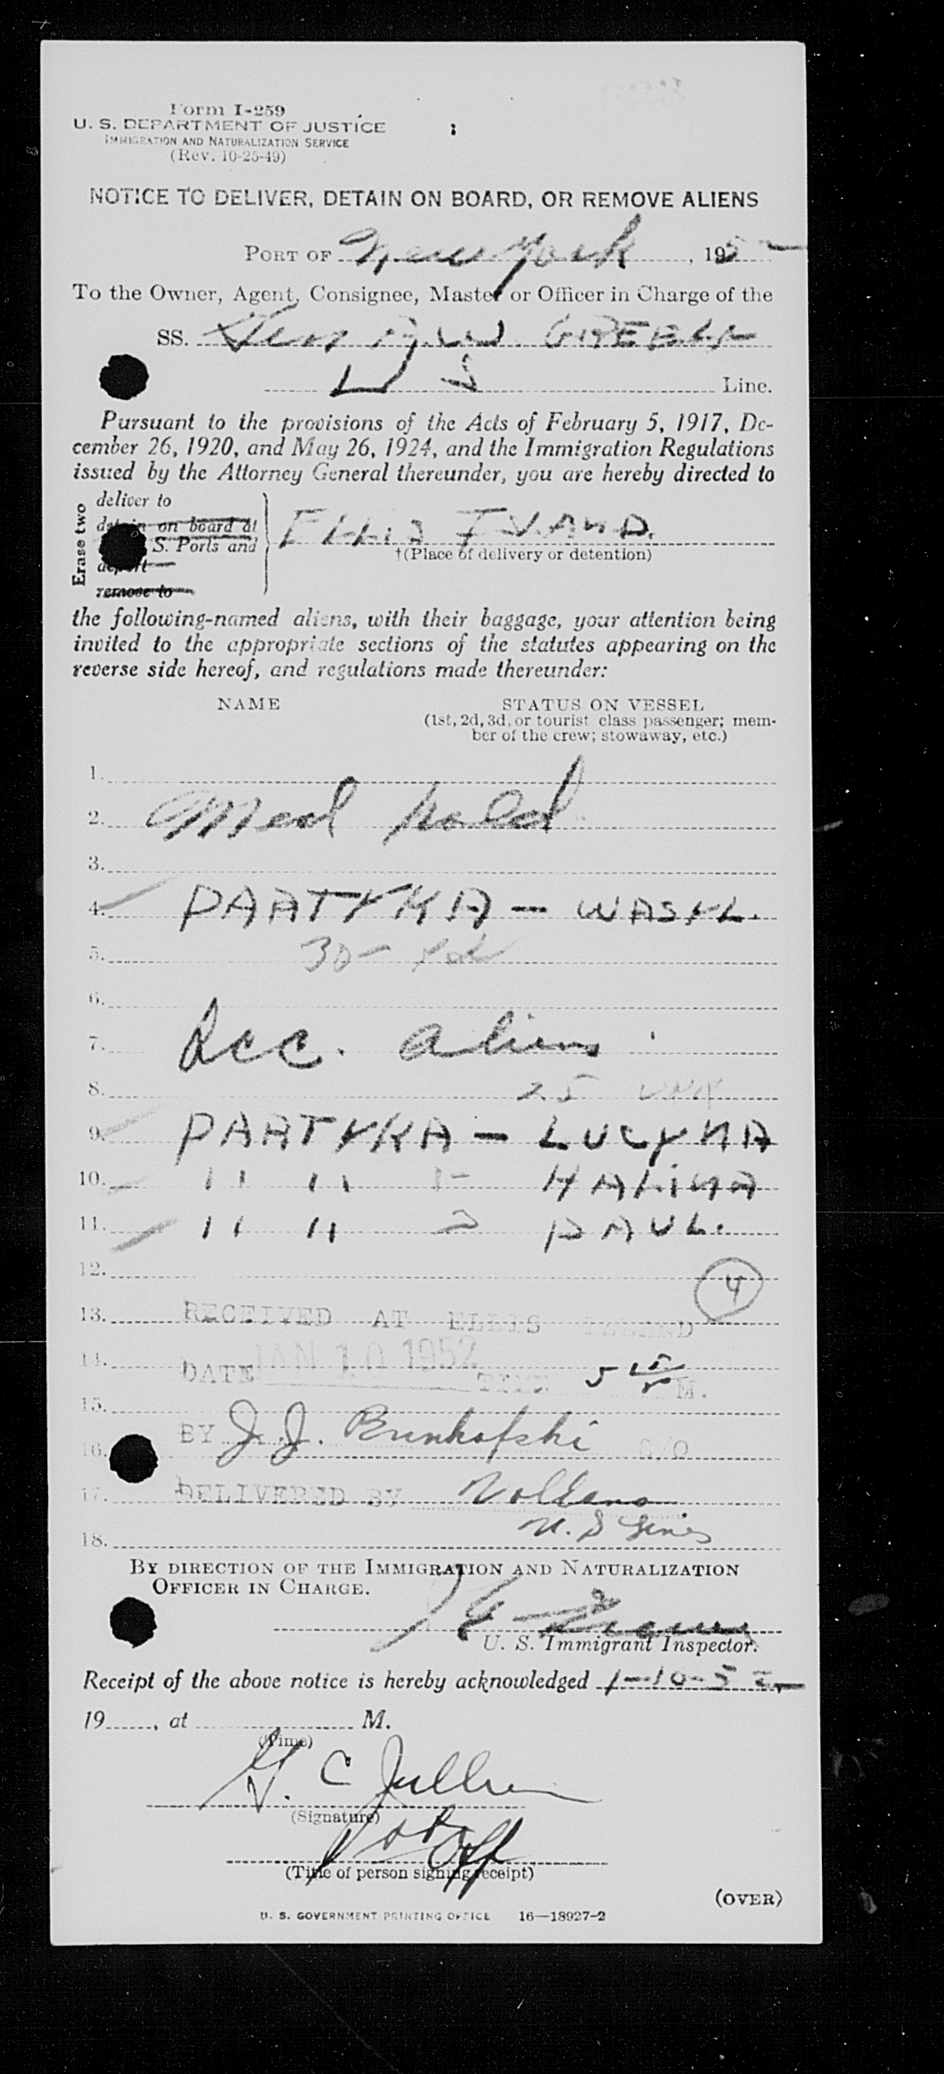 Form I-259
U. S. DEPARTMENT OF JUSTICE
IMMIGRATION AND NATURALIZATION SERVICE
(Rev. 10-25-49)
NOTICE TO DELIVER, DETAIN ON BOARD, OR REMOVE ALIENS
PORT OF New York, 195
To the Owner, Agent, Consignee, Master or Officer in Charge of the
SS. Gen A.W. GREELY
U S Line.
Pursuant to the provisions of the Acts of February 5, 1917, De-
cember 26, 1920, and May 26, 1924, and the Immigration Regulations
issued by the Attorney General thereunder, you are hereby directed to
Erase two
deliver to
detain on board at
S. Ports and
deport
remove to
ELLIS ISLAND.
†(Place of delivery or detention)
the following-named aliens, with their baggage, your attention being
invited to the appropriate sections of the statutes appearing on the
reverse side hereof, and regulations made thereunder:
NAME STATUS ON VESSEL
(1st, 2d, 3d, or tourist class passenger; mem-
ber of the crew; stowaway, etc.)
1.
2. Med hold
3.
4. PARTYKA - WASYL.
5. 30
6.
7. Acc. aliens
8. 25
9. PARTYKA - LUCYNA
10. " " HALINA
11. " " 2 PAUL.
12. 4
13. RECEIVED AT ELLIS ISLAND
14. DATE JAN 10 1952 TIME 5 15 P M.
15.
16. BY J. J. Brinkofski
17. DELIVERED BY
18. U. S Lines
BY DIRECTION OF THE IMMIGRATION AND NATURALIZATION
OFFICER IN CHARGE.
U. S. Immigrant Inspector.
Receipt of the above notice is hereby acknowledged 1-10-52
19, at M.
(Time)
G. C
(Signature)
Off
(Title of person signing receipt)
(OVER)
U. S. GOVERNMENT PRINTING OFFICE 16—18927-2